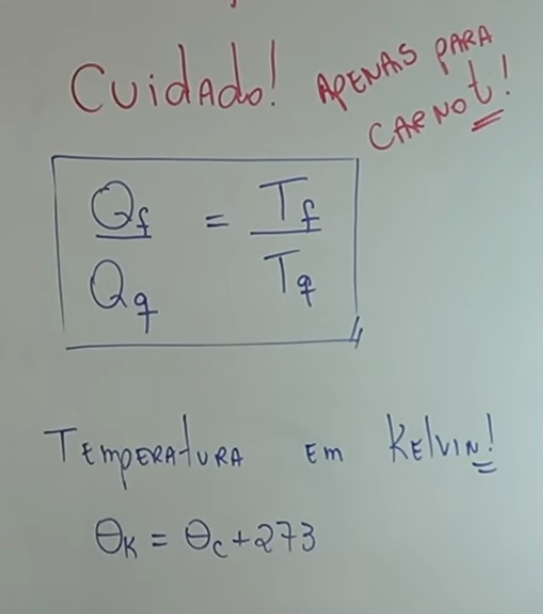 Cuidado! APENAS PARA
CARNOT!
Qf = Tf
Qq Tq
TEMPERATURA EM KELVIN!
θK = θC + 273